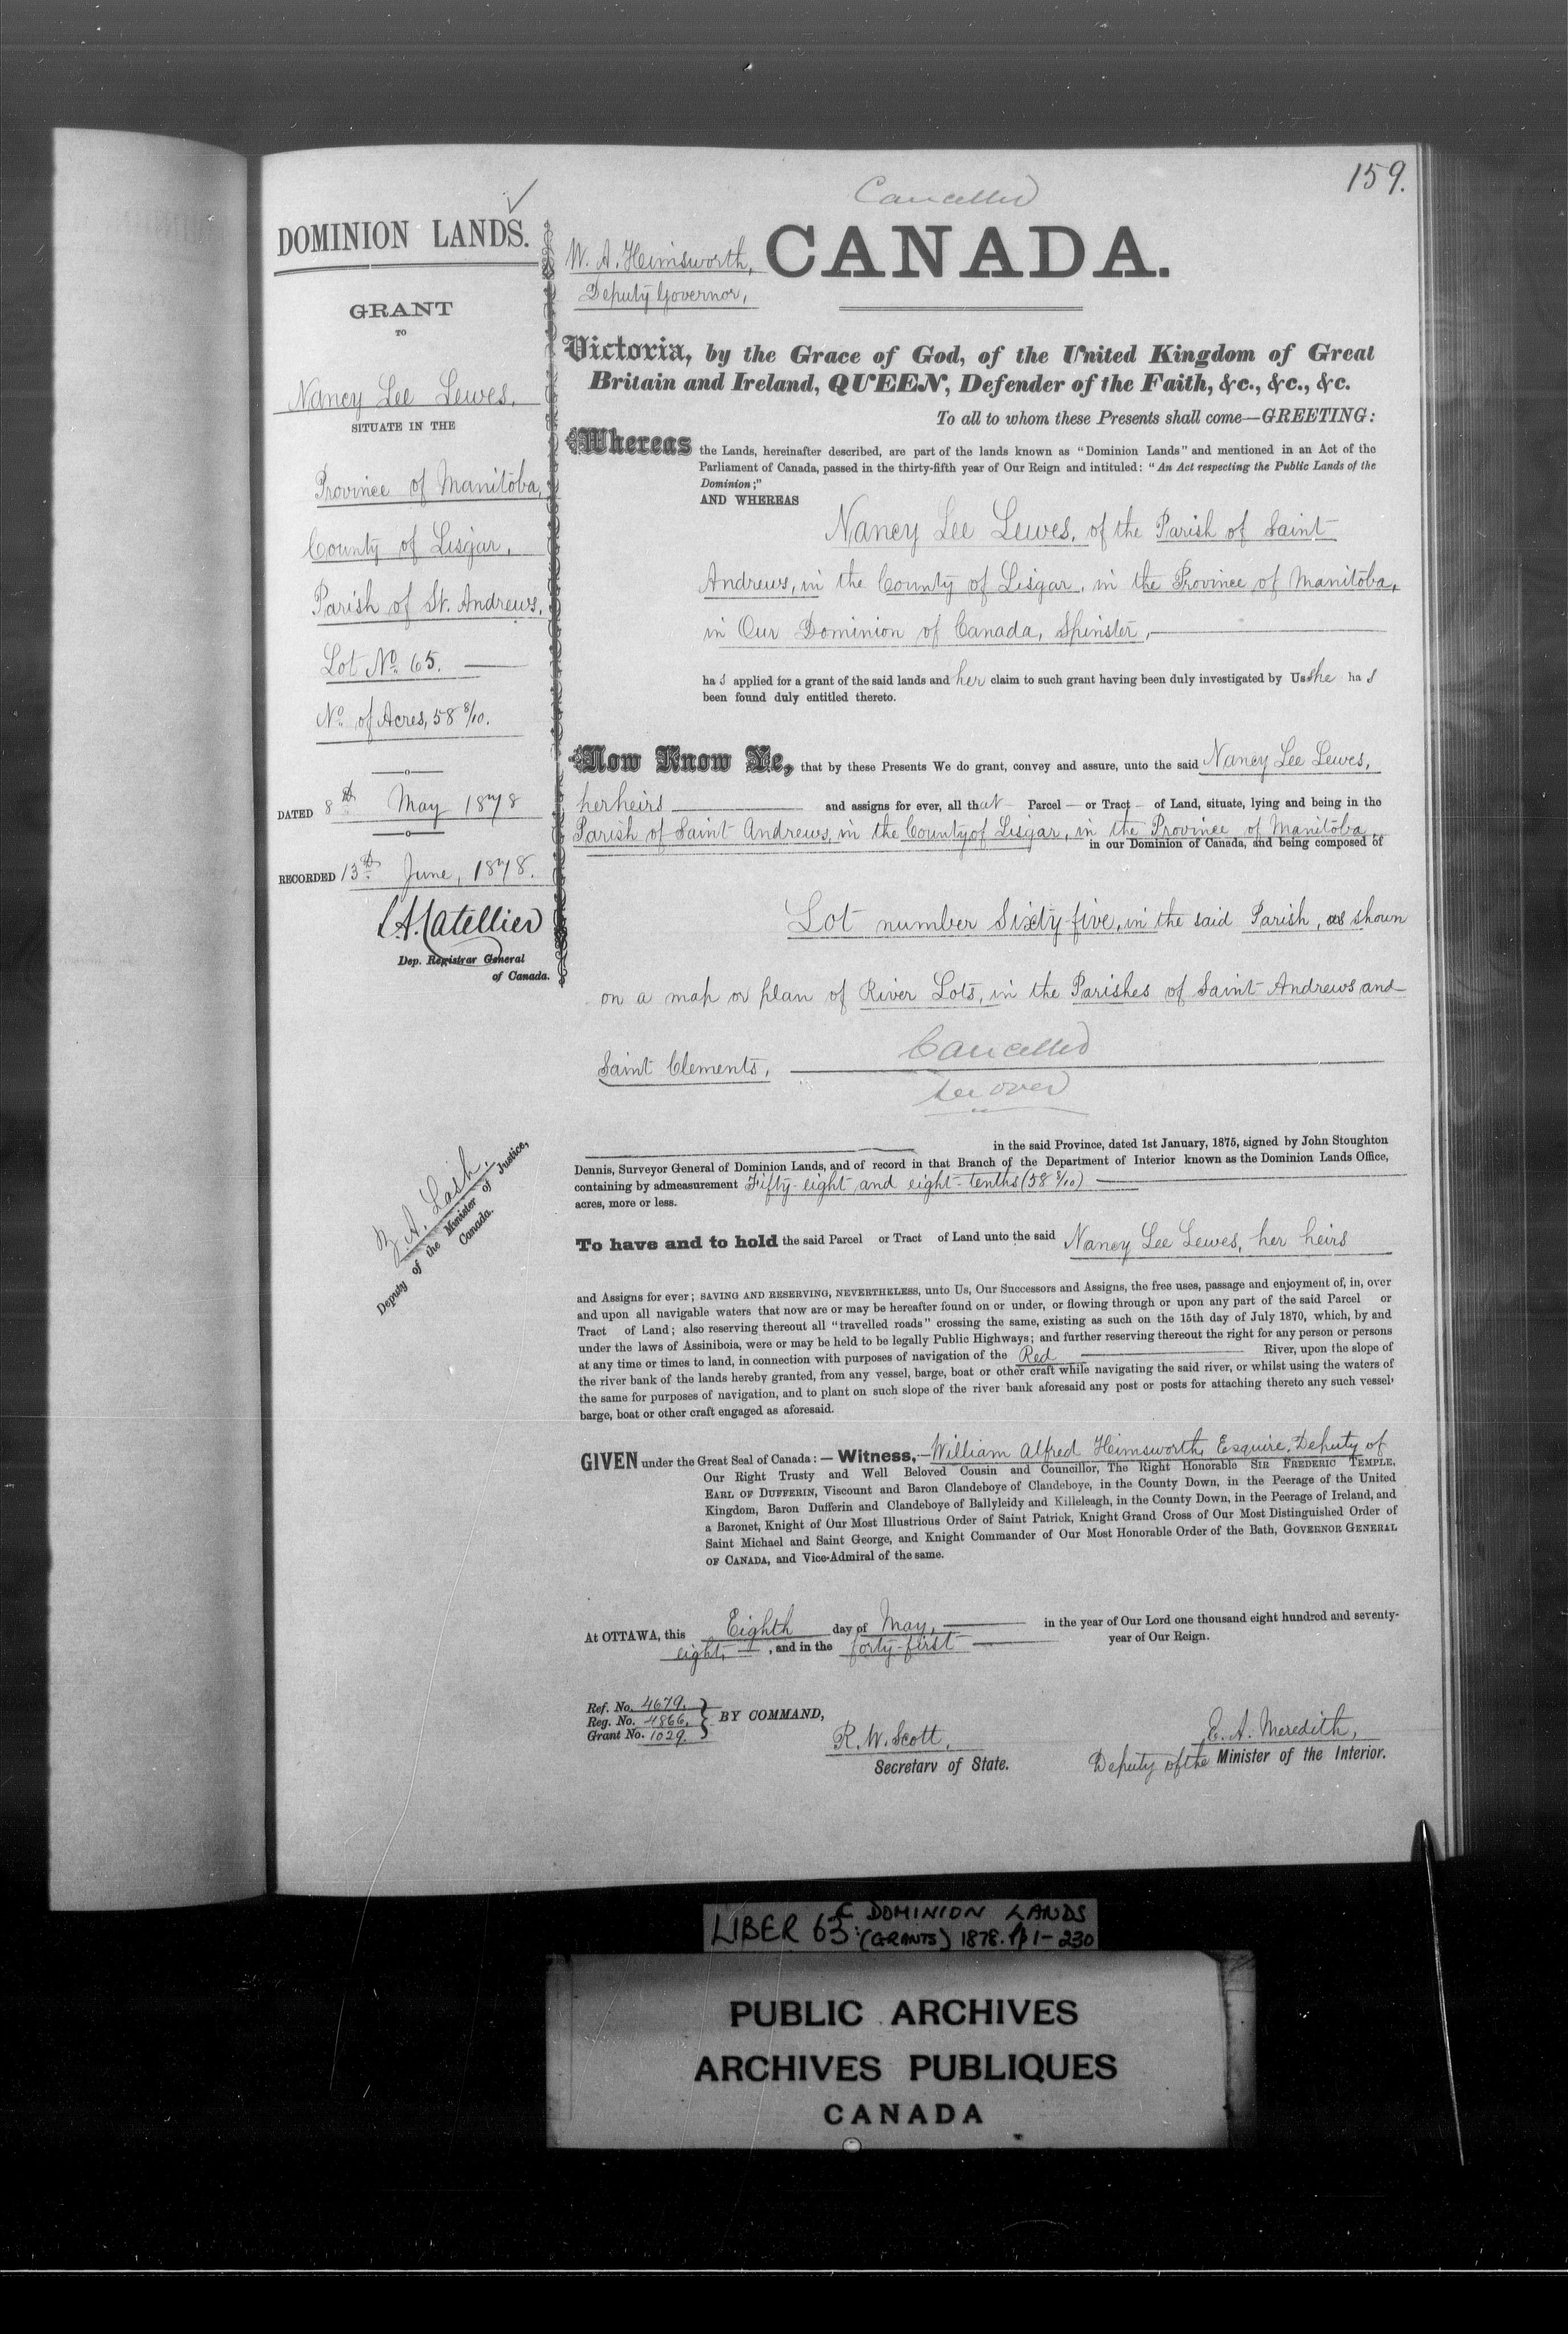 159.
Cancelled
DOMINION LANDS.
GRANT
TO
Nancy Lee Lewes.
SITUATE IN THE
Province of Manitoba,
County of Lisgar,
Parish of St. Andrews,
Lot No. 65.
No. of Acres, 58 8/10.
DATED 8th May 1878
RECORDED 13th June, 1878.
L.A. Catellier
Dep. Registrar General
of Canada.
Z. A. Lash.
Deputy of the Minister of Justice,
Canada.
W. A. Himsworth,
Deputy Governor,
CANADA.
Victoria, by the Grace of God, of the United Kingdom of Great
Britain and Ireland, QUEEN, Defender of the Faith, &c., &c., &c.
To all to whom these Presents shall come—GREETING:
Whereas the Lands, hereinafter described, are part of the lands known as "Dominion Lands" and mentioned in an Act of the
Parliament of Canada, passed in the thirty-fifth year of Our Reign and intituled: "An Act respecting the Public Lands of the
Dominion;"
AND WHEREAS
Nancy Lee Lewes, of the Parish of Saint
Andrews, in the County of Lisgar, in the Province of Manitoba,
in Our Dominion of Canada, Spinster,
has applied for a grant of the said lands and her claim to such grant having been duly investigated by Us she has
been found duly entitled thereto.
Now Know Ye, that by these Presents We do grant, convey and assure, unto the said Nancy Lee Lewes,
her heirs and assigns for ever, all that Parcel or Tract of Land, situate, lying and being in the
Parish of Saint Andrews, in the County of Lisgar, in the Province of Manitoba
in our Dominion of Canada, and being composed of
Lot number Sixty-five, in the said Parish, as shown
on a map or plan of River Lots, in the Parishes of Saint Andrews and
Saint Clements,
Cancelled
See over
in the said Province, dated 1st January, 1875, signed by John Stoughton
Dennis, Surveyor General of Dominion Lands, and of record in that Branch of the Department of Interior known as the Dominion Lands Office,
containing by admeasurement Fifty-eight and eight-tenths (58 8/10)
acres, more or less.
To have and to hold the said Parcel or Tract of Land unto the said Nancy Lee Lewes, her heirs
and Assigns for ever; SAVING AND RESERVING, NEVERTHELESS, unto Us, Our Successors and Assigns, the free uses, passage and enjoyment of, in, over
and upon all navigable waters that now are or may be hereafter found on or under, or flowing through or upon any part of the said Parcel or
Tract of Land; also reserving thereout all "travelled roads" crossing the same, existing as such on the 15th day of July 1870, which, by and
under the laws of Assiniboia, were or may be held to be legally Public Highways; and further reserving thereout the right for any person or persons
at any time or times to land, in connection with purposes of navigation of the Red River, upon the slope of
the river bank of the lands hereby granted, from any vessel, barge, boat or other craft while navigating the said river, or whilst using the waters of
the same for purposes of navigation, and to plant on such slope of the river bank aforesaid any post or posts for attaching thereto any such vessel,
barge, boat or other craft engaged as aforesaid.
GIVEN under the Great Seal of Canada:—Witness,—William Alfred Himsworth, Esquire, Deputy of
Our Right Trusty and Well Beloved Cousin and Councillor, The Right Honorable SIR FREDERIC TEMPLE,
EARL OF DUFFERIN, Viscount and Baron Clandeboye of Clandeboye, in the County Down, in the Peerage of the United
Kingdom, Baron Dufferin and Clandeboye of Ballyleidy and Killeleagh, in the County Down, in the Peerage of Ireland, and
a Baronet, Knight of Our Most Illustrious Order of Saint Patrick, Knight Grand Cross of Our Most Distinguished Order of
Saint Michael and Saint George, and Knight Commander of Our Most Honorable Order of the Bath, GOVERNOR GENERAL
OF CANADA, and Vice-Admiral of the same.
At OTTAWA, this Eighth day of May, in the year of Our Lord one thousand eight hundred and seventy-
eight, , and in the forty-first year of Our Reign.
Ref. No. 4679.
Reg. No. 4866.
Grant No. 1029.
BY COMMAND,
R. W. Scott,
Secretary of State.
E. A. Meredith,
Deputy of the Minister of the Interior.
LIBER 63: C DOMINION LANDS
(GRANTS) 1878. pp 1-230
PUBLIC ARCHIVES
ARCHIVES PUBLIQUES
CANADA